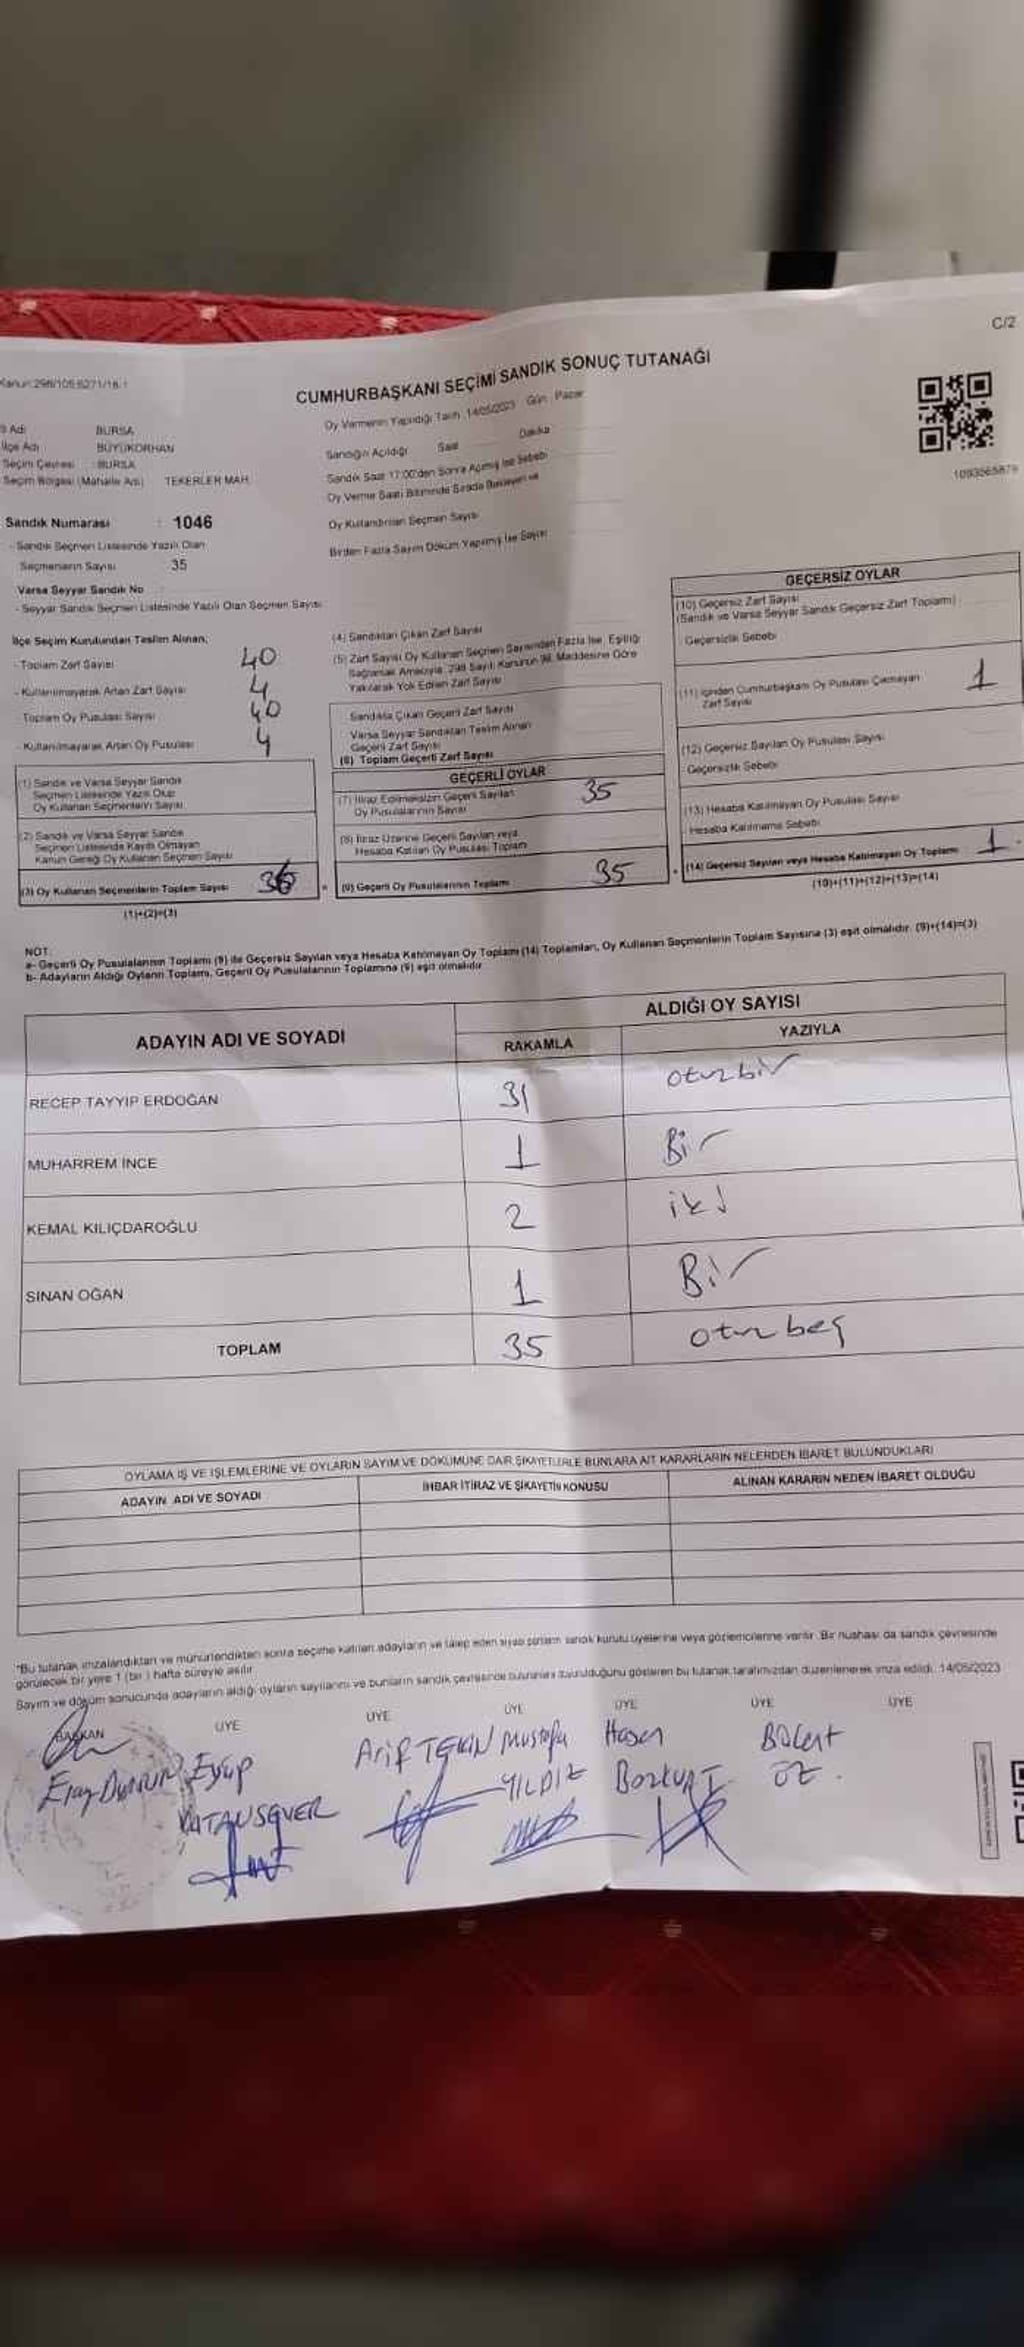 C/2
CUMHURBAŞKANI SEÇİMİ SANDIK SONUÇ TUTANAĞI
Oy Vermenin Yapıldığı Tarih 14/05/2023 Gün Pazar
Sandığın Açıldığı Saat Dakika
Sandık Saat 17:00'den Sonra Açılmış İse Sebebi
Oy Verme Saati Bitiminde Sırada Bekleyen ve
Oy Kullandırılan Seçmen Sayısı
Birden Fazla Sayım Döküm Yapılmış İse Sayısı
İl Adı BURSA
İlçe Adı BÜYÜKORHAN
Seçim Çevresi : BURSA
Seçim Bölgesi (Mahalle Adı) TEKERLER MAH.
Sandık Numarası : 1046
- Sandık Seçmen Listesinde Yazılı Olan
Seçmenlerin Sayısı 35
Varsa Seyyar Sandık No
- Seyyar Sandık Seçmen Listesinde Yazılı Olan Seçmen Sayısı
İlçe Seçim Kurulundan Teslim Alınan;
- Toplam Zarf Sayısı 40
- Kullanılmayarak Artan Zarf Sayısı 4
- Toplam Oy Pusulası Sayısı 40
- Kullanılmayarak Artan Oy Pusulası 4
(1) Sandık ve Varsa Seyyar Sandık
Seçmen Listesinde Yazılı Olup
Oy Kullanan Seçmenlerin Sayısı
(2) Sandık ve Varsa Seyyar Sandık
Seçmen Listesinde Kayıtlı Olmayan
Kanun Gereği Oy Kullanan Seçmen Sayısı
(3) Oy Kullanan Seçmenlerin Toplam Sayısı 36
(1)+(2)=(3)
(4) Sandıktan Çıkan Zarf Sayısı
(5) Zarf Sayısı Oy Kullanan Seçmen Sayısından Fazla İse, Eşitliği
Sağlamak Amacıyla, 298 Sayılı Kanunun 98. Maddesine Göre
Yakılarak Yok Edilen Zarf Sayısı
Sandıkta Çıkan Geçerli Zarf Sayısı
Varsa Seyyar Sandıktan Teslim Alınan
Geçerli Zarf Sayısı
(6) Toplam Geçerli Zarf Sayısı
GEÇERLİ OYLAR
(7) İtiraz Edilmeksizin Geçerli Sayılan
Oy Pusulalarının Sayısı 35
(8) İtiraz Üzerine Geçerli Sayılan veya
Hesaba Katılan Oy Pusulası Toplam
(9) Geçerli Oy Pusulalarının Toplamı 35
GEÇERSİZ OYLAR
(10) Geçersiz Zarf Sayısı
(Sandık ve Varsa Seyyar Sandık Geçersiz Zarf Toplamı)
Geçersizlik Sebebi
(11) İçinden Cumhurbaşkanı Oy Pusulası Çıkmayan
Zarf Sayısı 1
(12) Geçersiz Sayılan Oy Pusulası Sayısı
Geçersizlik Sebebi
(13) Hesaba Katılmayan Oy Pusulası Sayısı
Hesaba Katılmama Sebebi
(14) Geçersiz Sayılan veya Hesaba Katılmayan Oy Toplamı 1
(10)+(11)+(12)+(13)=(14)
NOT:
a- Geçerli Oy Pusulalarının Toplamı (9) ile Geçersiz Sayılan veya Hesaba Katılmayan Oy Toplamı (14) Toplamları, Oy Kullanan Seçmenlerin Toplam Sayısına (3) eşit olmalıdır. (9)+(14)=(3)
b- Adayların Aldığı Oyların Toplamı, Geçerli Oy Pusulalarının Toplamına (9) eşit olmalıdır
ADAYIN ADI VE SOYADI ALDIĞI OY SAYISI
RAKAMLA YAZIYLA
RECEP TAYYIP ERDOĞAN 31 otuzbir
MUHARREM İNCE 1 Bir
KEMAL KILIÇDAROĞLU 2 iki
SİNAN OĞAN 1 Bir
TOPLAM 35 otuzbeş
OYLAMA İŞ VE İŞLEMLERİNE VE OYLARIN SAYIM VE DÖKÜMÜNE DAİR ŞİKAYETLERLE BUNLARA AİT KARARLARIN NELERDEN İBARET BULUNDUKLARI
ADAYIN ADI VE SOYADI İHBAR İTİRAZ VE ŞİKAYETİN KONUSU ALINAN KARARIN NEDEN İBARET OLDUĞU
*Bu tutanak imzalandıktan ve mühürlendikten sonra seçime katılan adayların ve talep eden siyasi partilerin sandık kurulu üyelerine veya gözlemcilerine verilir. Bir nüshası da sandık çevresinde
görülecek bir yere 1 (bir) hafta süreyle asılır
Sayım ve döküm sonucunda adayların aldığı oyların sayılarını ve bunların sandık çevresinde duyurulduğunu gösteren bu tutanak tarafımızdan düzenlenerek imza edildi. 14/05/2023
BAŞKAN ÜYE ÜYE ÜYE ÜYE ÜYE ÜYE
Eyüp Arif TEKİN Mustafa YILDIZ Hasan BOZKURT Bülent ÖZ